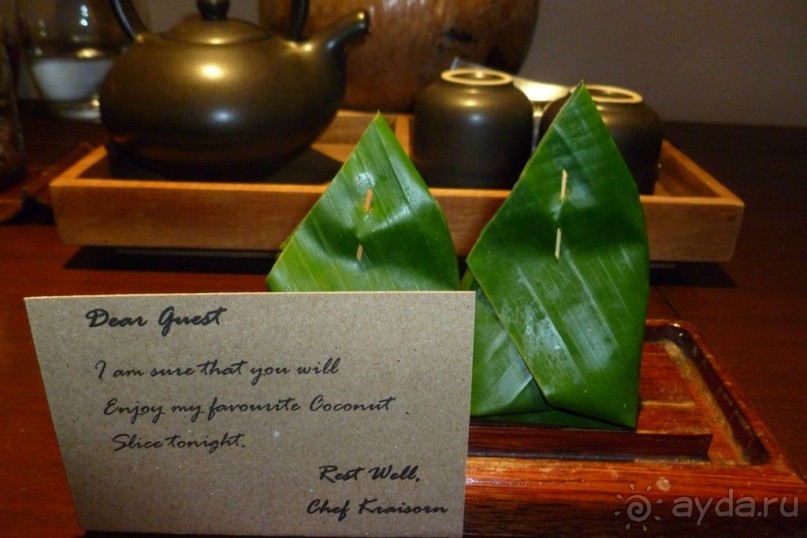 Dear Guest
I am sure that you will
Enjoy my favourite Coconut
Slice tonight.
Rest Well,
Chef Kraisorn
ayda.ru